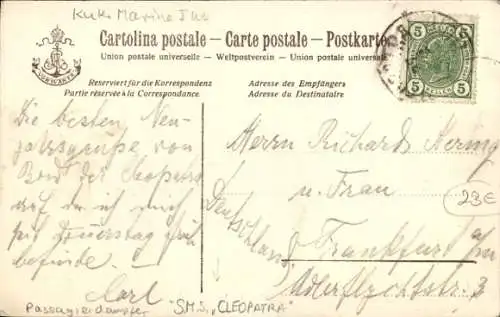 K.u.K. Marine
Cartolina postale — Carte postale — Postkarte
Union postale universelle — Weltpostverein — Union postale universale
Reserviert für die Korrespondenz
Partie réservée à la Correspondance
Adresse des Empfängers
Adresse du Destinataire
5 5
HELLER
Die besten Neu-
jahrsgrüße von
Bord der Cleopatra
auf d ich mich
seit Donnerstag früh
befinde.
Carl
Herrn Richard
u. Frau
Frankfurt a/m
Deutschland
23€
Passagierdampfer
"S.M.S. „CLEOPATRA"